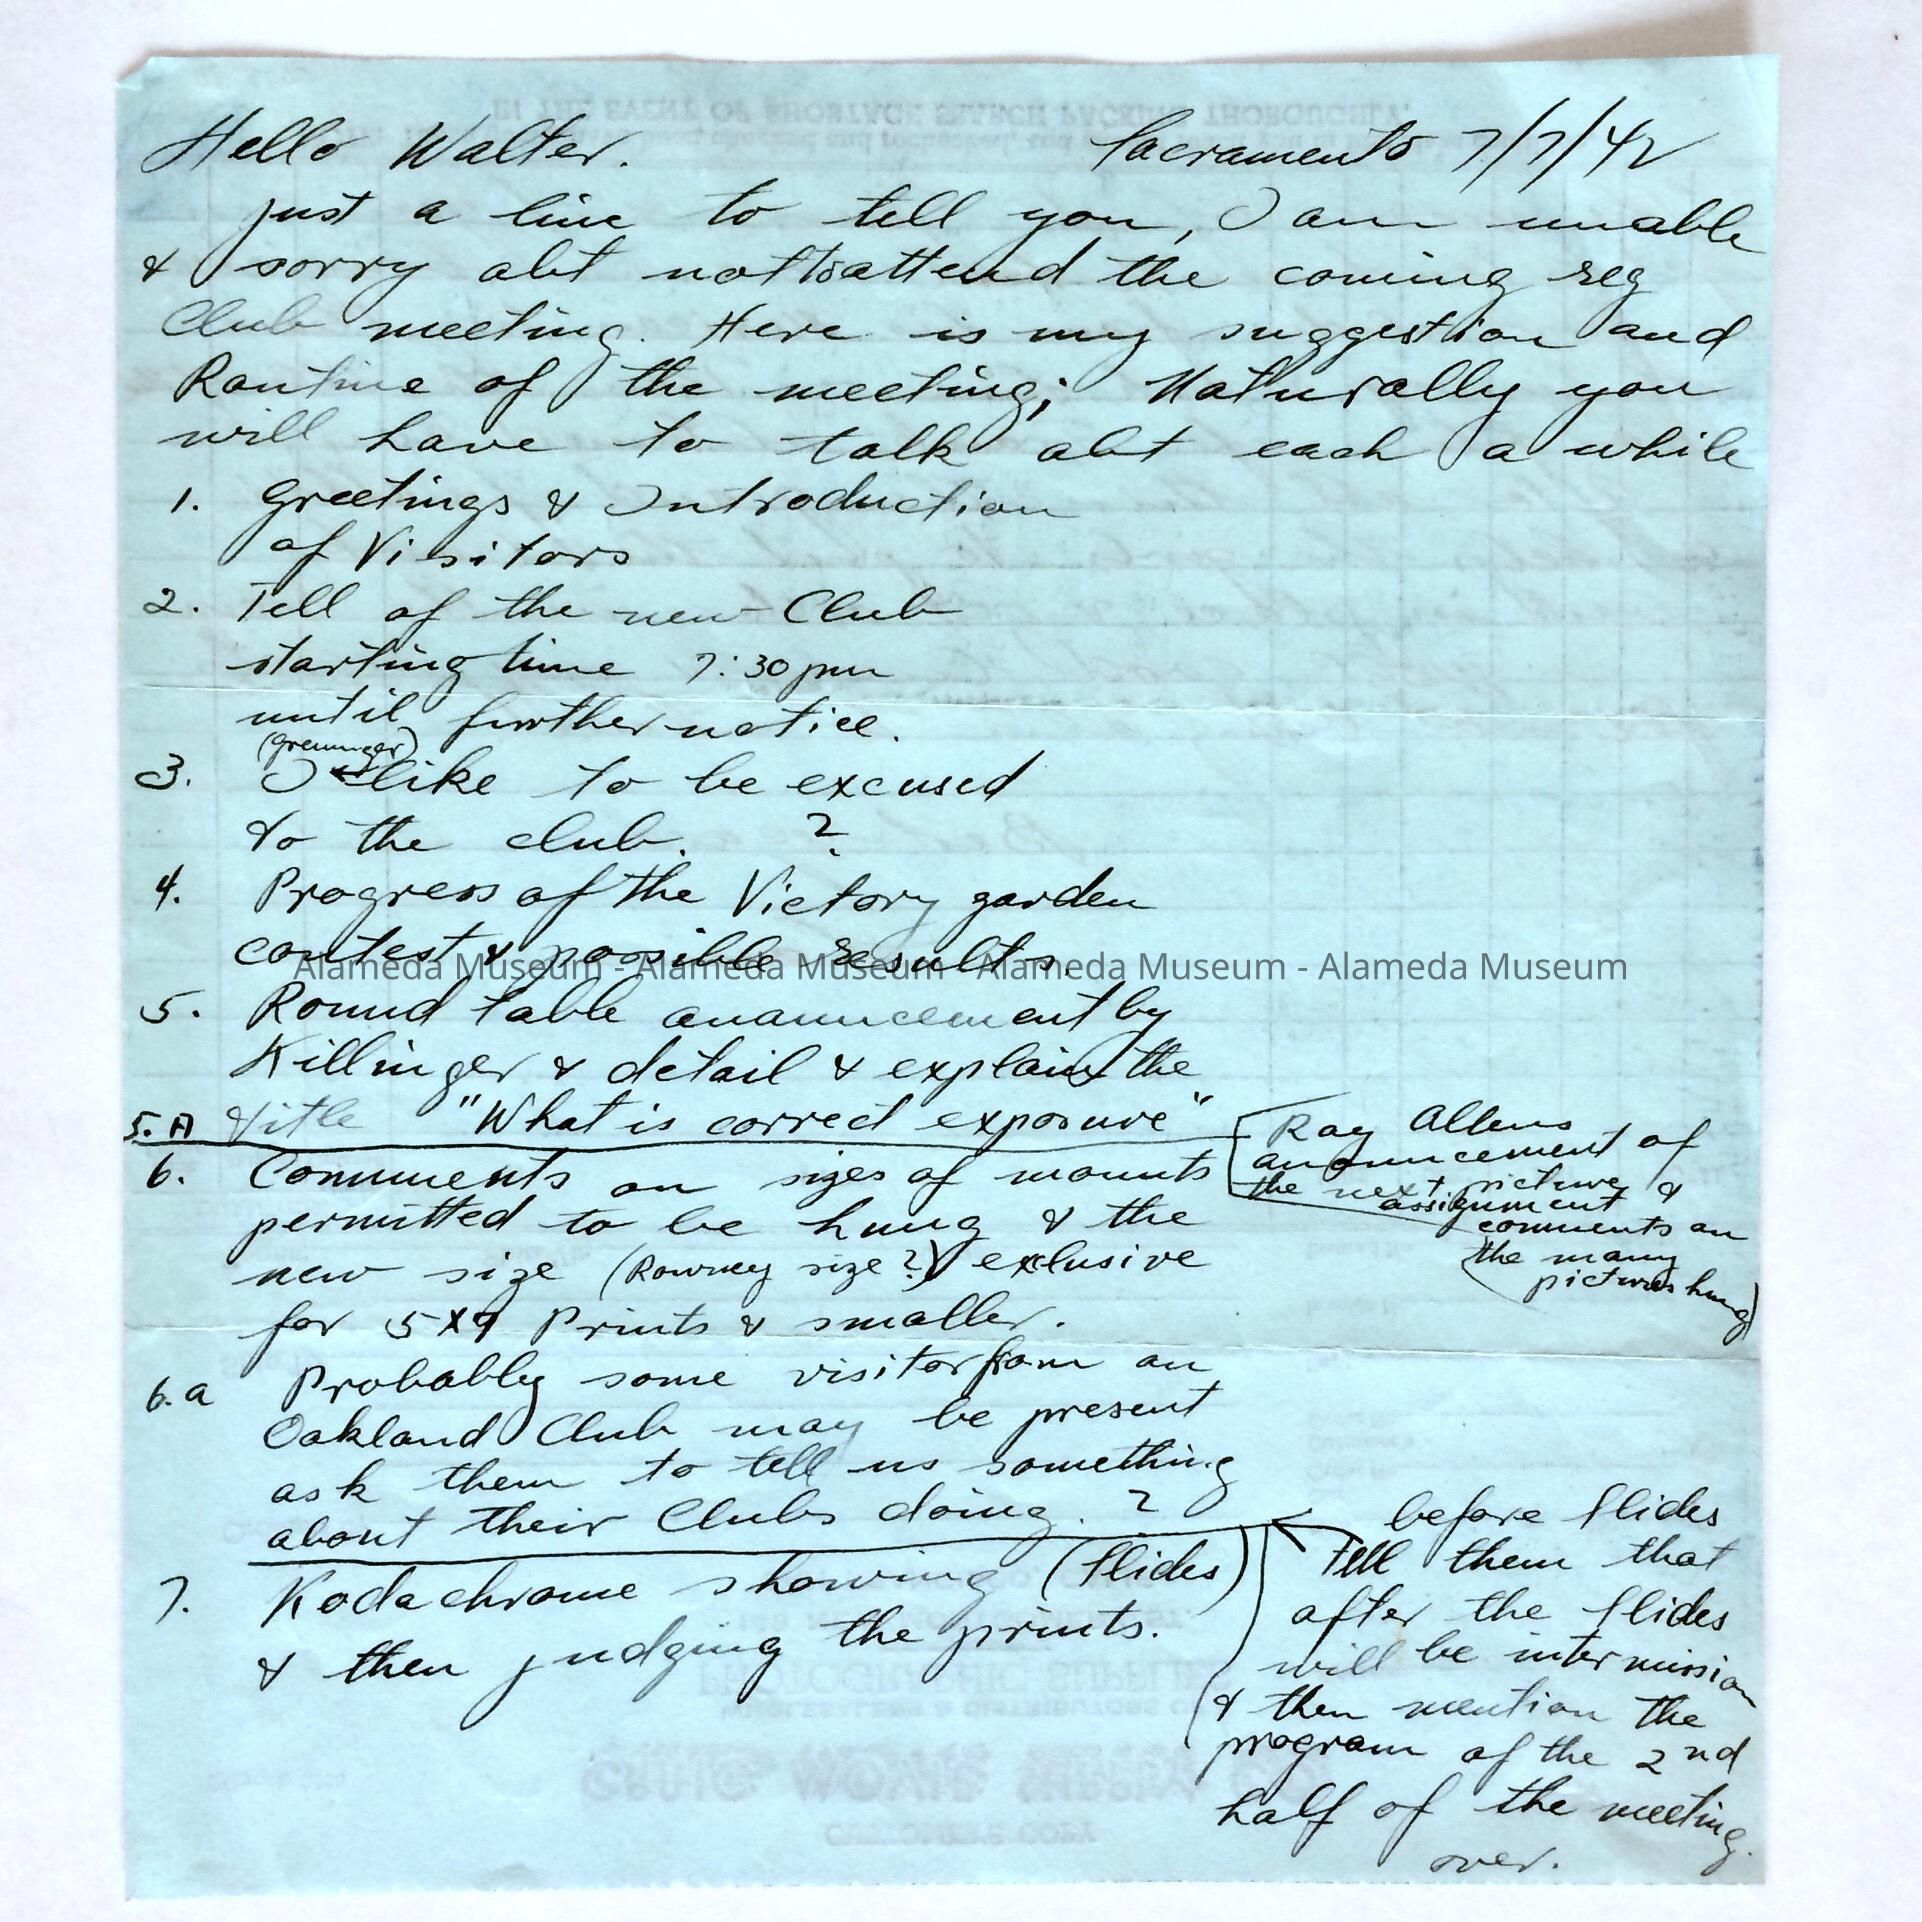 Hello Walter. Sacramento 7/7/42
just a line to tell you, I am unable
& sorry abt not to attend the coming reg
Club meeting. Here is my suggestion and
Routine of the meeting; Naturally you
will have to talk abt each a while
1. Greetings & Introduction
of Visitors
2. Tell of the new Club
starting time 7:30 pm
until further notice.
3. I like to be excused
to the club. ?
4. Progress of the Victory garden
contest & possible results.
Alameda Museum - Alameda Museum - Alameda Museum - Alameda Museum
5. Round table anouncement by
Killinger & detail & explain the
5.A title "What is correct exposure"
Ray Allens
anouncement of
the next picture &
assignment
comments on
the many
pictures hung)
6. Comments on sizes of mounts
permitted to be hung & the
new size (Rowney size?) exclusive
for 5x7 Prints & smaller.
6.a Probably some visitor from an
Oakland Club may be present
ask them to tell us something
about their Clubs doing. ?
7. Kodachrome showing (Slides)
& then judging the prints.
before Slides
Tell them that
after the Slides
will be intermission
& then mention the
program of the 2nd
half of the meeting.
over.